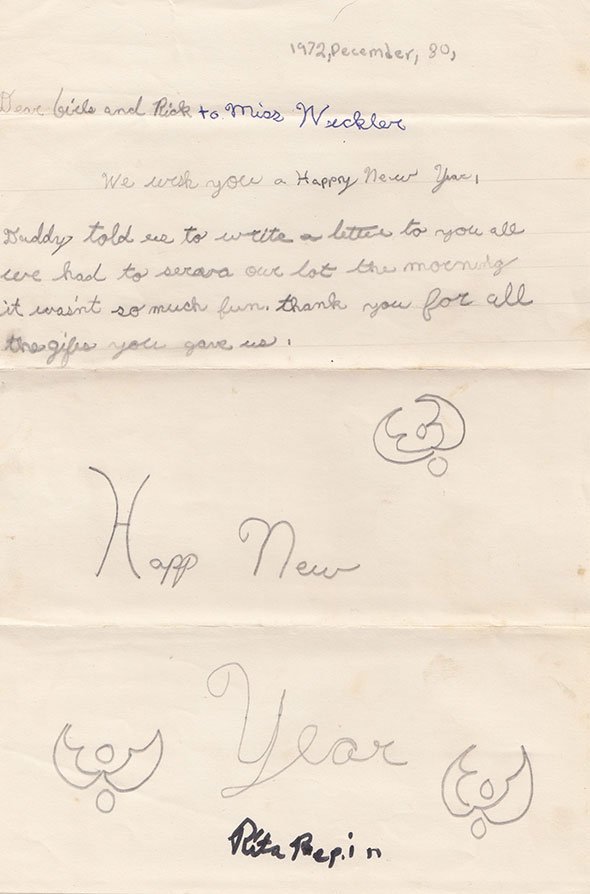 1972, December, 30,
Dear Girls and Rick to Miss Wickler
We wish you a Happy New Year,
Daddy told us to write a letter to you all
we had to our lot the morning
it wasn't so much fun. thank you for all
the gifes you gave us.
Happ New
Year
Rita Pepin